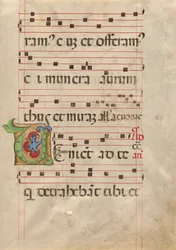 ram' eū et offeram'
ei munera aurum
thus et mirrā all'a
Venient ad te
q detrahebāt tibi et